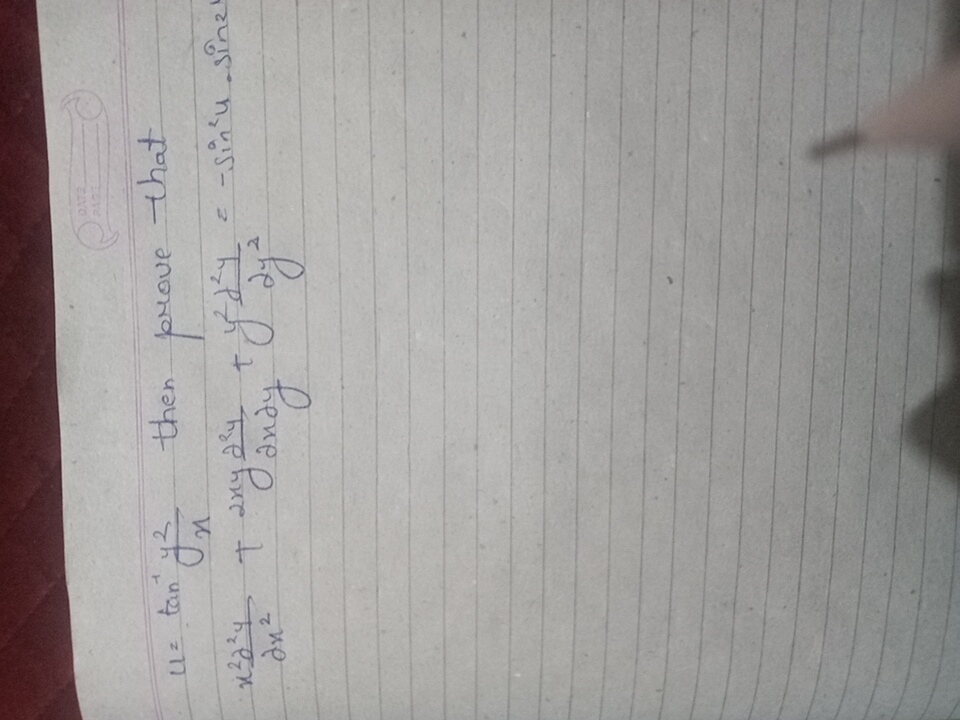 DATE
PAGE
u = tan⁻¹ y²/x then prove that
x²∂²y/∂x² + 2xy ∂²y/∂x∂y + y² ∂²y/∂y² = -sin²u . sin2u